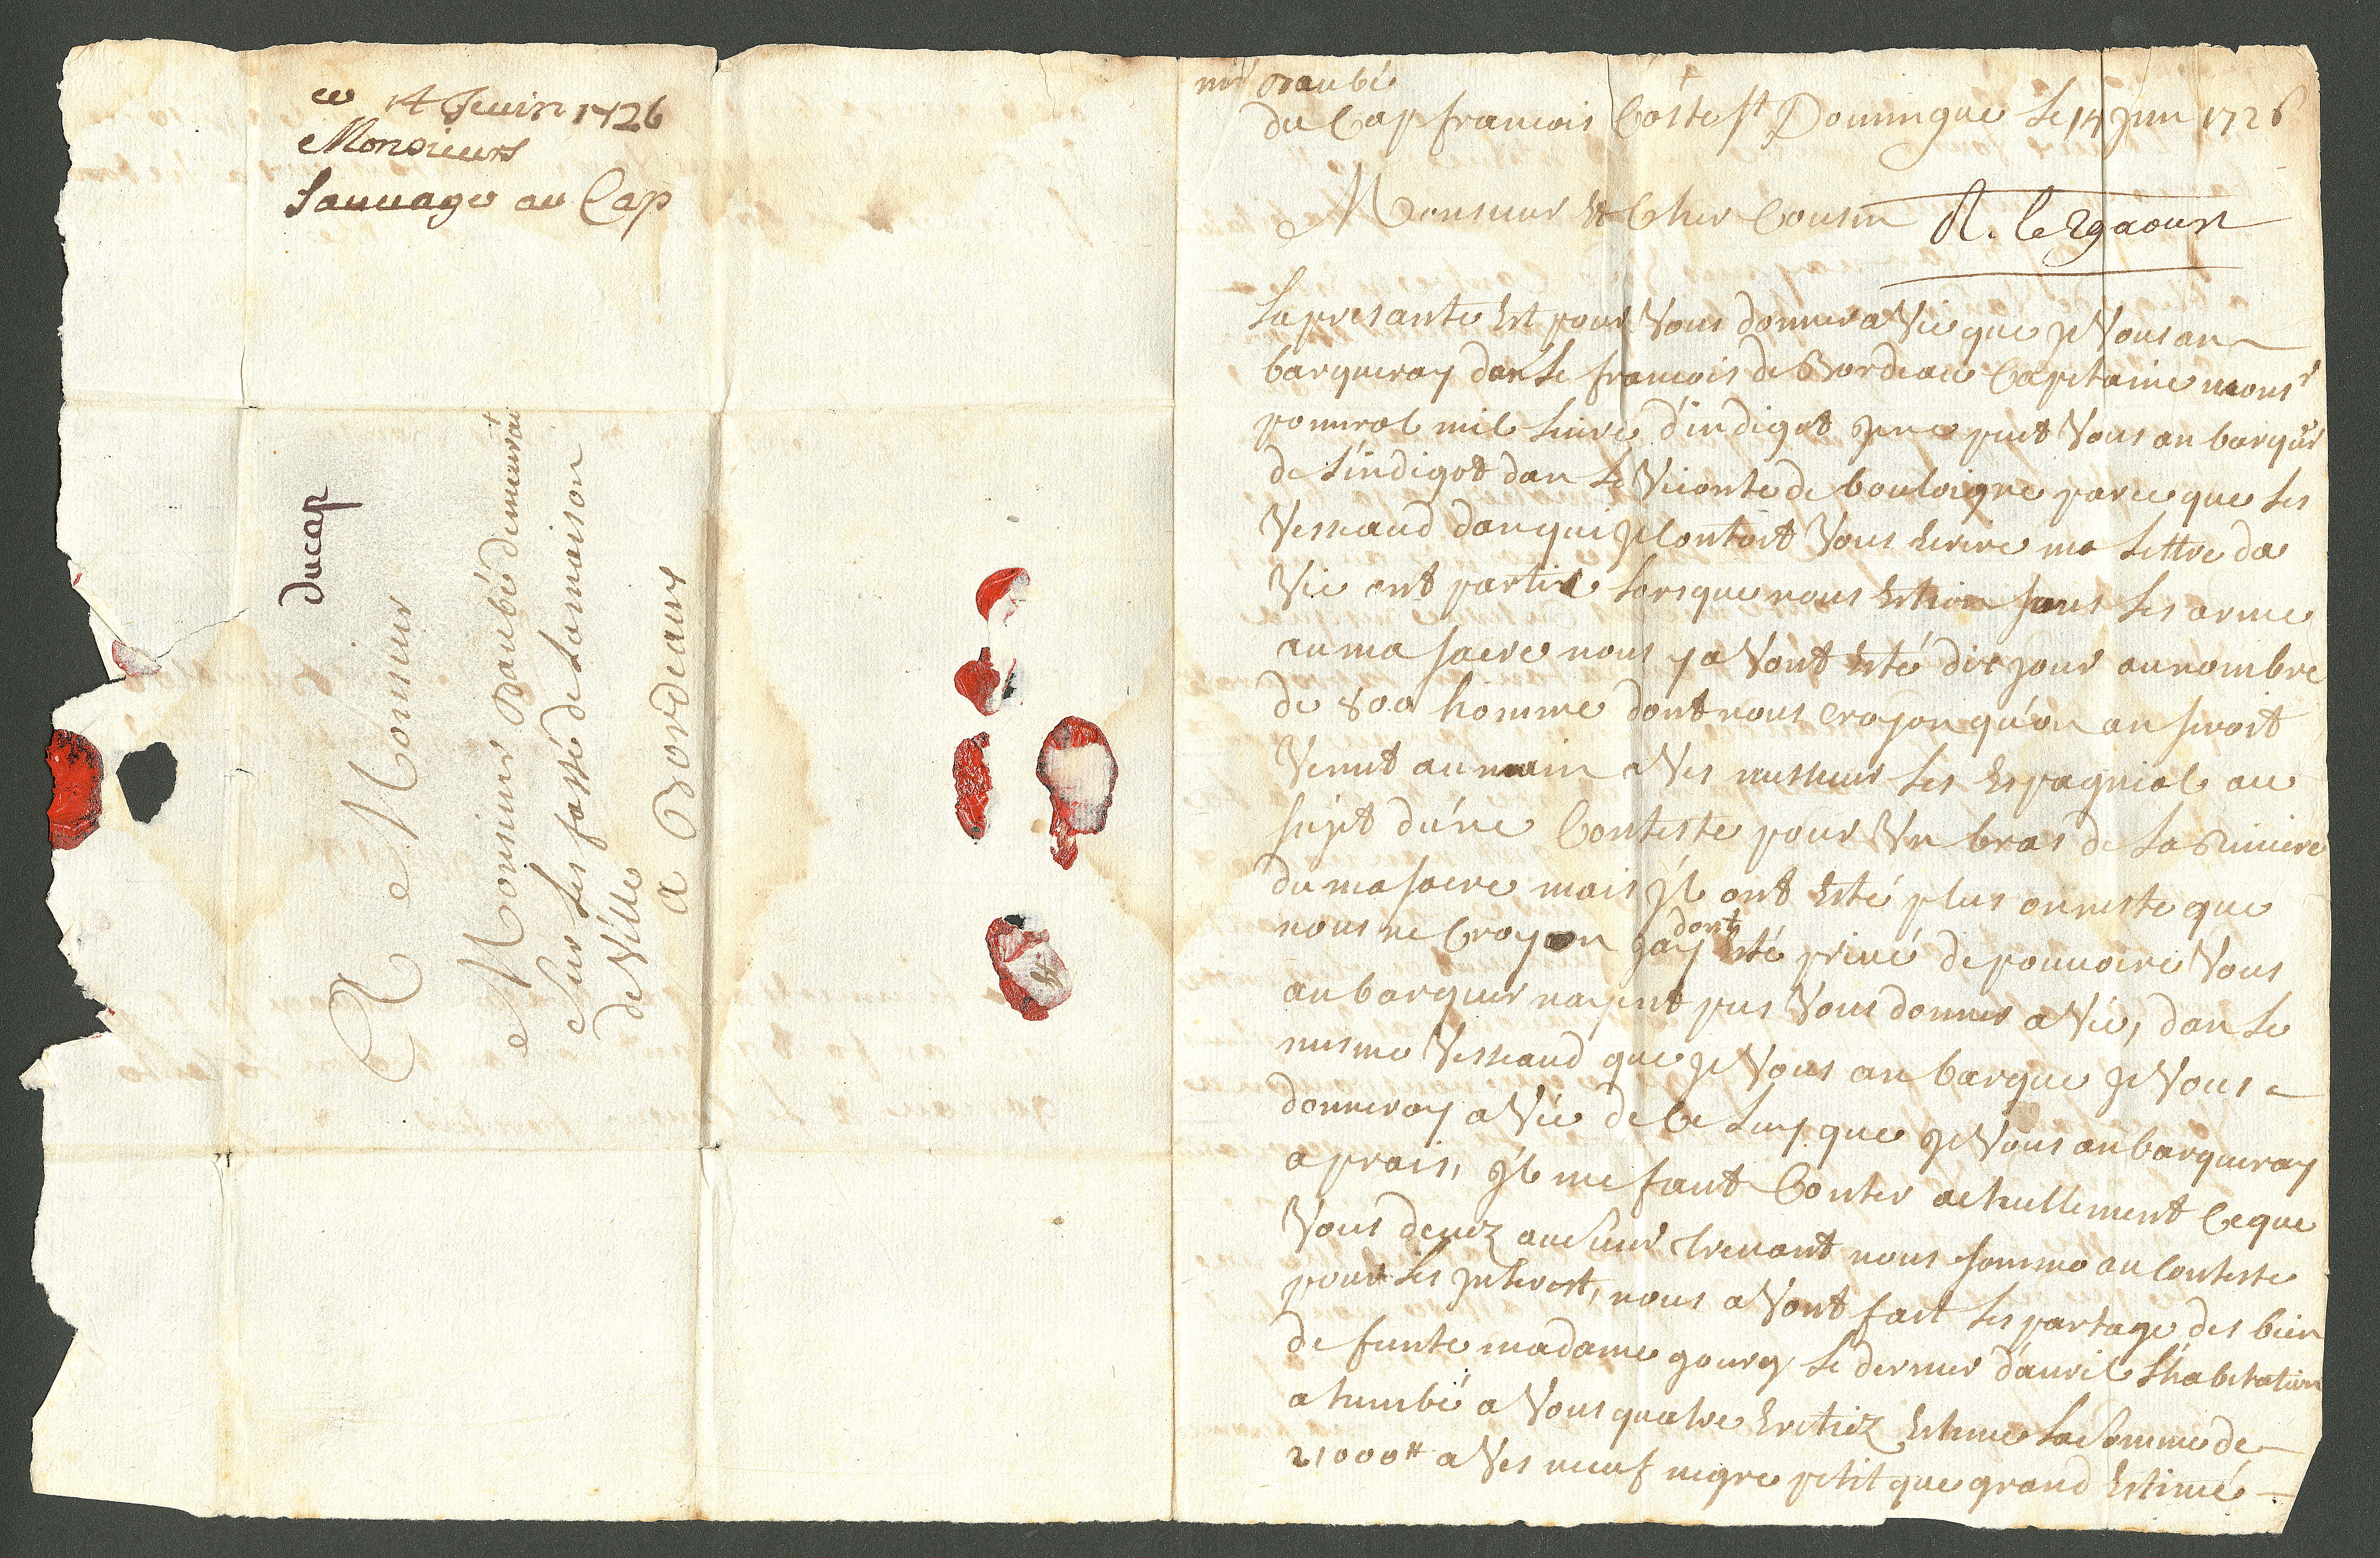 ce 14 Jeuin 1726
Monsieurs
Sauvage au Cap
du cap
A Monsieur
Monsieur Daubé demeurāt
Sur Les fossé de La maison
de Ville
a Bordeaux
mr Daubé
du Cap francois Coste St Domingue Le 14 juin 1726
Monsieur Et Cher Cousin R. le 29 aoust
La presante Est pour Vous donner a Vie que je Vous an
barqueray dan Le francois de Bordeaux Capitaine monsr
pomerol mil Livre d'indigot je ne peut Vous an barquer
de L'indigot dan Le Viconte de bouloigne parce que Les
Vesseaud dan qui je Contoit Vous Ecrire ma Lettre da
Vie ont partie Lorsque nous Estion sous Les arme
au ma sacre nous y a Vont Esté dix jour au nombre
de 800 homme dont nous croyon qu'on an seroit
Venut au main a Ves messieur Les Espagniol au
sujet d'une Conteste pour Un bras de La Riviere
du ma sacre mais jl ont Esté plus onneste que
nous ne Croyon dont j'ay Esté privé de pouvoire Vous
an barquer nayent pus Vous donner a Vie, dan Le
mesme Vesseaud que je Vous an barque je Vous
donneray a Vie de Ce Luy que je Vous an barqueray
a prais, jl me faut Conter actuellement Ce que
Vous devez au Sieur trenant nous somme an Conteste
pour Les jnterest, nous a Vont fait Les partage des bien
de funte madame gourg Le dernier d'avril L'habitation
a tumbé a Vous quatre Eretiez Estime La Somme de
21000# a Ves neuf negre petit que grand Estimé